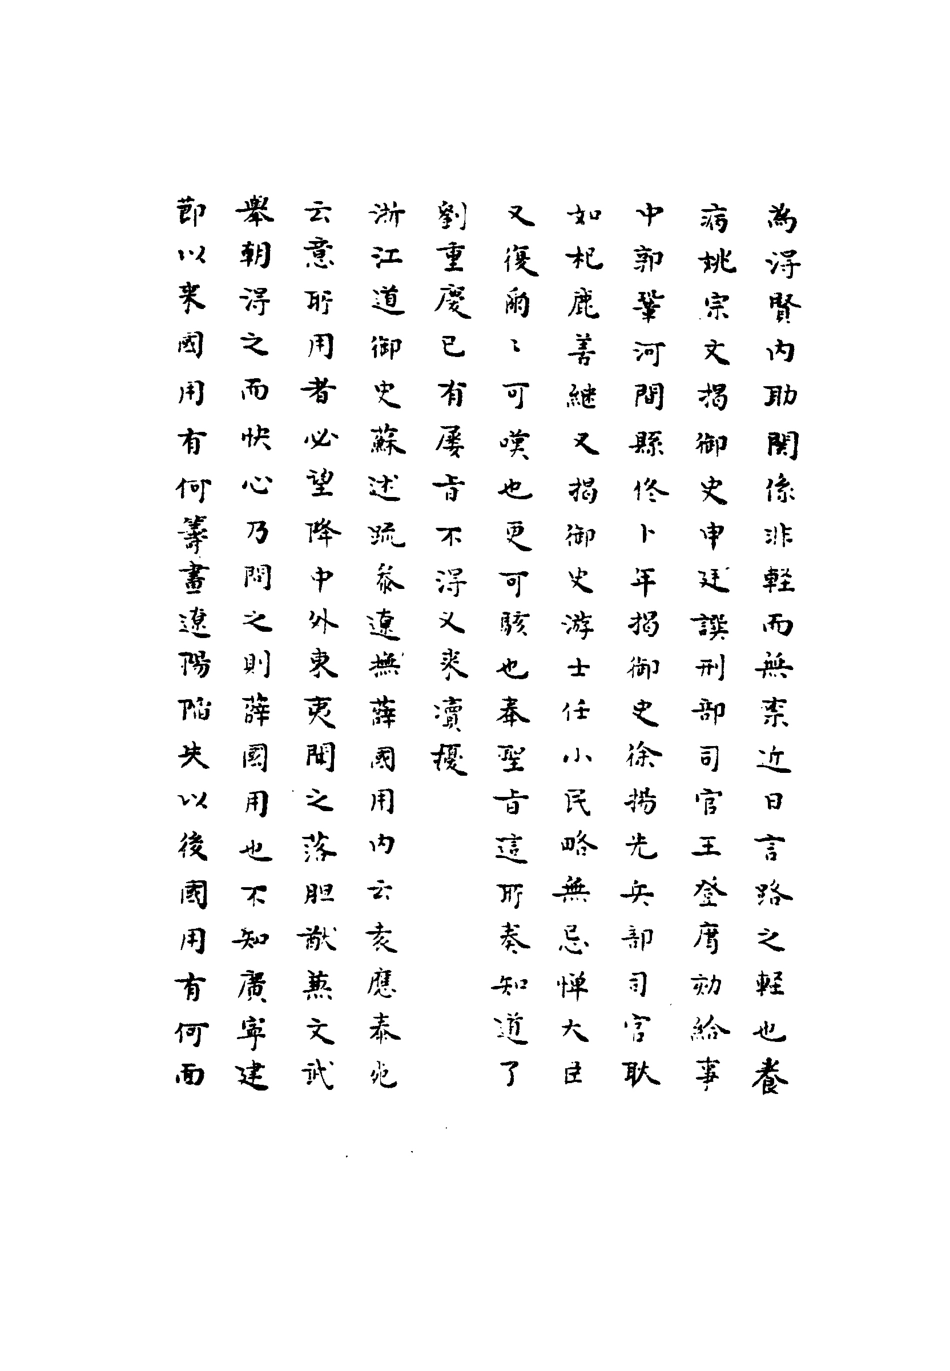 為得賢內助關係非輕而無柰近日言路之輕也養
病姚宗文揭御史申廷譔刑部司官王登庸劾給事
中郭鞏河間縣佟卜年揭御史徐揚光兵部司官耿
如杞鹿善継又揭御史游士任小民略無忌憚大臣
又復爾〻可嘆也更可駭也奉聖旨這所奏知道了
劉重慶已有屡旨不得又来瀆擾
浙江道御史蘇述疏叅遼撫薛國用內云亥應泰死
云意所用者必望降中外東夷聞之落胆猷蕪文武
舉朝得之而快心乃問之則薛國用也不知廣寧建
節以来國用有何籌畫遼陽陷失以後國用有何面